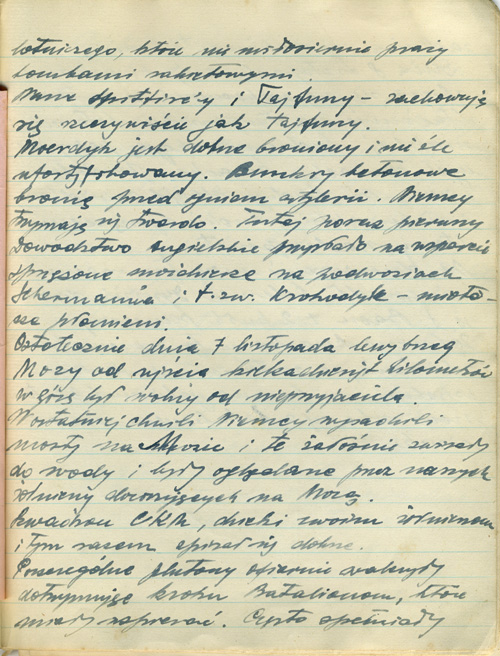 lotniczego, które nie miłosiernie praży
bombami rakietowymi.
Nasze Spitfire'y i Tajfuny – zachowują
się rzeczywiście jak tajfuny.
Moerdyk jest dobrze broniony i nieźle
ufortyfikowany. Bunkry betonowe
bronią przed ogniem artylerii. Niemcy
trzymają się twardo. Tutaj poraz pierwszy
Dowództwo angielskie przysłało na wsparcie
sprzężone moździerze na podwoziach
Schermanów i t.zw. Krokodyle – miota-
cze płomieni.
Ostatecznie dnia 7 listopada lewy brzeg
Mozy od ujścia kilkadziesiąt kilometrów
w górę był wolny od nieprzyjaciela.
W ostatniej chwili Niemcy wysadzili
mosty na Mozie i te żałośnie zwisały
do wody i były oglądane przez naszych
żołnierzy dozorujących na Mozą.
Szwadron C.K.M., dzięki swoim żołnierzom
i tym razem spisał się dobrze.
Poszczególne plutony ofiarnie walczyły
dotrzymując kroku Batalionom, które
miały wspierać. Często spełniały